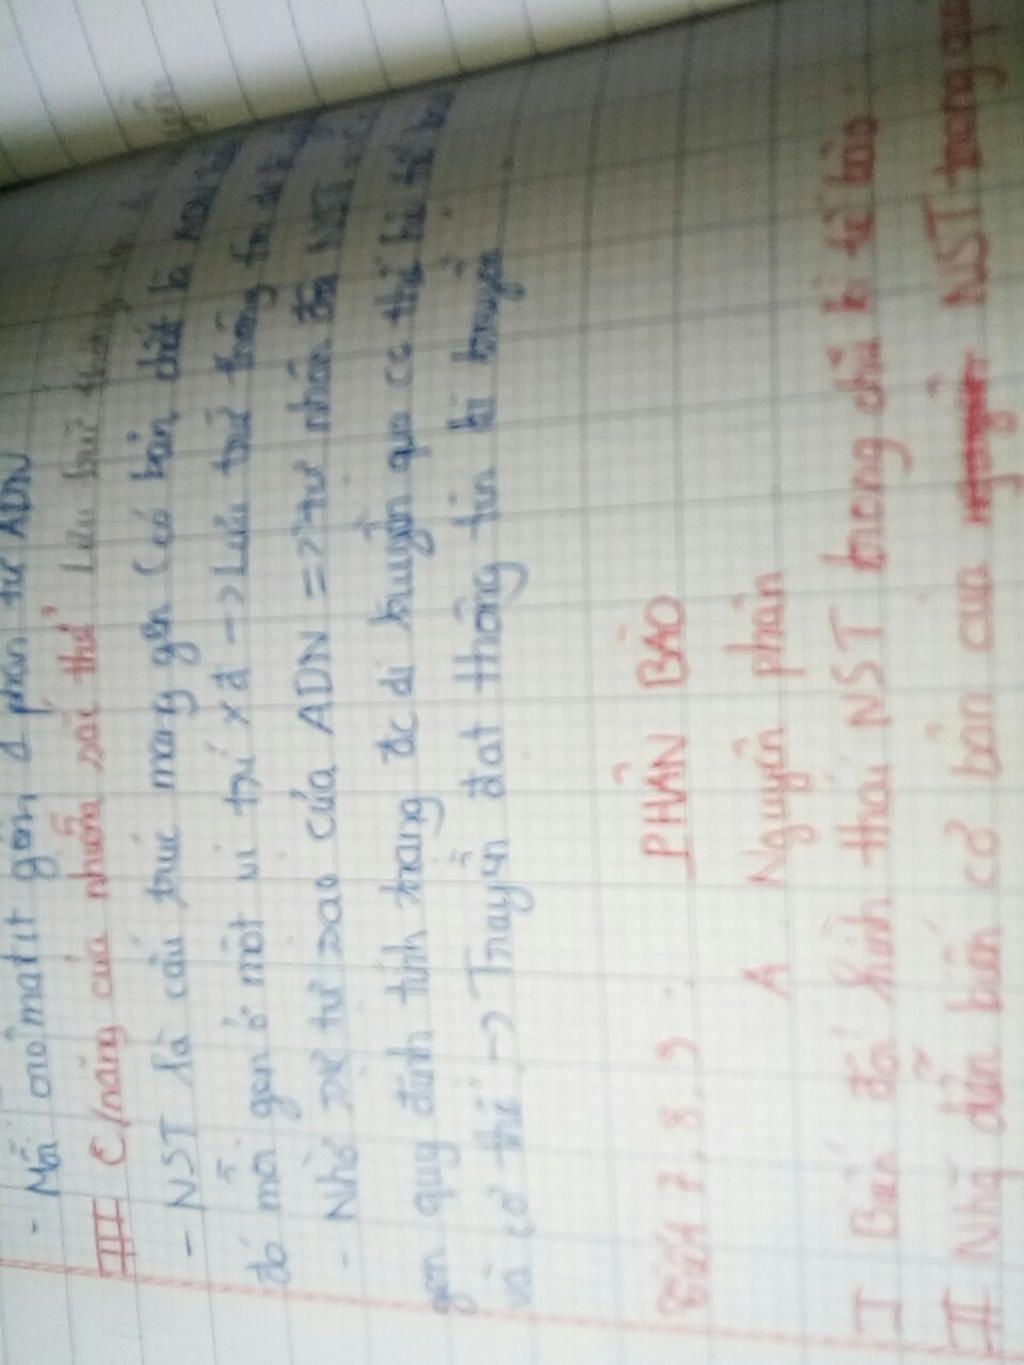 - Mỗi crômatit gồm 1 phân tử ADN
III C/năng của nhiễm sắc thể Lưu trữ thông tin
- NST là cấu trúc mang gen (có bản chất là ADN
đó mỗi gen ở một vị trí x'đ -> Lưu trữ thông tin di
- Nhờ sự tự sao của ADN => sự tự nhân đôi NST
gen quy định tính trạng đc di truyền qua các thế hệ tế bào
và cơ thể -> Truyền đạt thông tin di truyền
Tiết 7.8.9 PHÂN BÀO
A Nguyên phân
I Biến đổi hình thái NST trong chu kì tế bào
II Nhg diễn biến cơ bản của NST trong